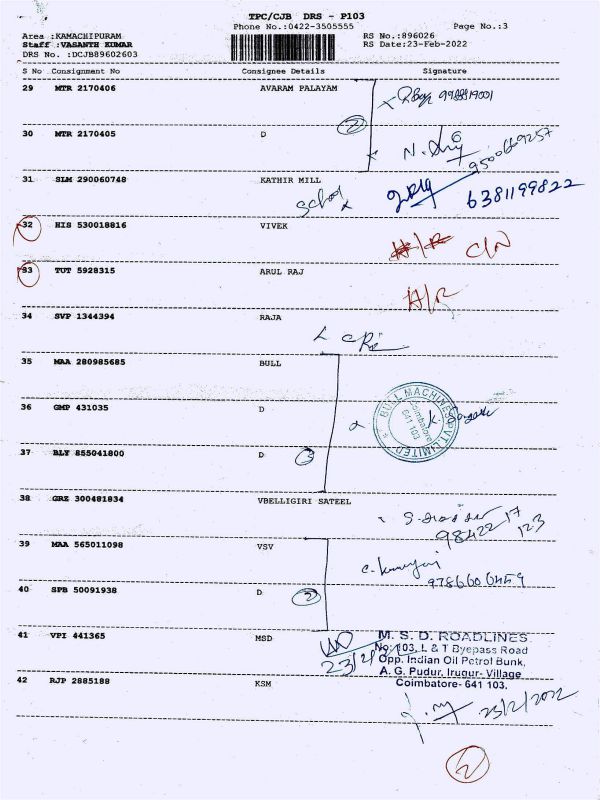 TPC/CJB DRS - P103
Phone No.:0422-3505555 Page No.:3
Area :KAMACHIPURAM RS No.:896026
Staff :VASANTH KUMAR RS Date:23-Feb-2022
DRS No. :DCJB89602603
S No Consignment No Consignee Details Signature
29 MTR 2170406 AVARAM PALAYAM
2
30 MTR 2170405 D
9500669257
31 SLM 290060748 KATHIR MILL
6381199822
32 HIS 530018816 VIVEK
C/N
33 TUT 5928315 ARUL RAJ
34 SVP 1344394 RAJA
35 MAA 280985685 BULL
36 GMP 431035 D
BULL MACHINES PVT. LIMITED
Coimbatore
641 103
37 BLY 855041800 D
3
38 GRZ 300481834 VBELLIGIRI SATEEL
98422 17
123
39 MAA 565011098 VSV
9786606459
40 SPB 50091938 D
2
41 VPI 441365 MSD
M. S. D. ROADLINES
No: 103, L & T Byepass Road
Opp. Indian Oil Petrol Bunk,
A. G. Pudur, Irugur- Village
Coimbatore- 641 103.
42 RJP 2885188 KSM
23/2/2022